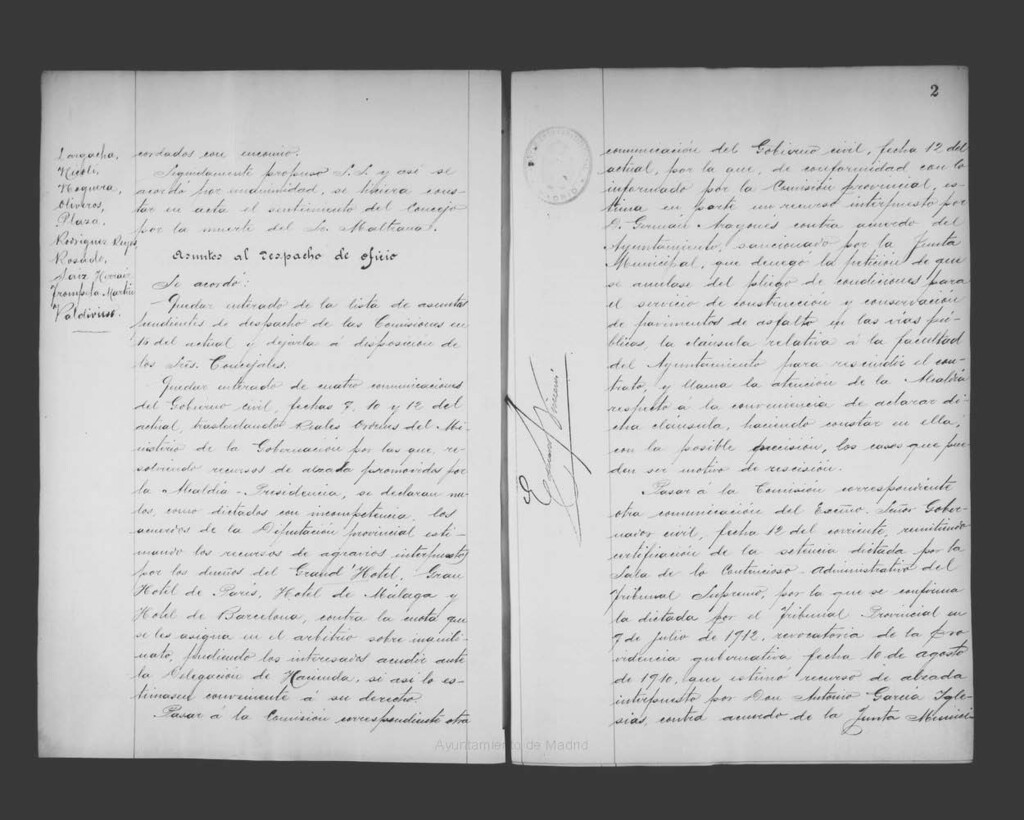 Largacha,
Nicoli,
Noguera,
Oliveros,
Plaza,
Rodriguez Reyes
Rosado,
Saiz Herraiz
Trompeta, Martin
Valdivieso.
cordados con encomio.
Seguidamente propuso S. S. y así se
acordó por unanimidad, se hiciera cons-
tar en acta el sentimiento del Concejo
por la muerte del Sr. Maltrana.
Asuntos al despacho de oficio
Se acordó:
Quedar enterado de la lista de asuntos
pendientes de despacho de las Comisiones en
15 del actual y dejarla á disposición de
los Sres. Concejales.
Quedar enterado de cuatro comunicaciones
del Gobierno civil, fechas 7, 10 y 12 del
actual, trasladando Reales Ordenes del Mi-
nisterio de la Gobernación por las que, re-
solviendo recursos de alzada promovidos por
la Alcaldía-Presidencia, se declaran nu-
los, como dictados con incompetencia, los
acuerdos de la Diputación provincial esti-
mando los recursos de agravios interpuestos
por los dueños del Grand'Hotel, Gran
Hotel de París, Hotel de Malaga y
Hotel de Barcelona, contra la cuota que
se les asigna en el arbitrio sobre inquili-
nato, pudiendo los interesados acudir ante
la Delegación de Hacienda, si así lo es-
timasen conveniente á su derecho.
Pasar á la Comisión correspondiente otra
2
comunicación del Gobierno civil, fecha 12 del
actual, por la que, de conformidad con lo
informado por la Comisión provincial, es-
tima en parte un recurso interpuesto por
D. Germán Aragonés contra acuerdo del
Ayuntamiento, sancionado por la Junta
Municipal, que denegó la petición de que
se anulase del pliego de condiciones para
el servicio de construcción y conservación
de pavimentos de asfalto en las vías pú-
blicas, la cláusula relativa á la facultad
del Ayuntamiento para rescindir el con-
trato, y llama la atención de la Alcaldía
respecto á la conveniencia de aclarar di-
cha cláusula, haciendo constar en ella,
con la posible precisión, los casos que pue-
den ser motivo de rescisión.
Pasar á la Comisión correspondiente
otra comunicación del Excmo. Señor Gober-
nador civil, fecha 12 del corriente, remitiendo
certificación de la setencia dictada por la
Sala de lo Contencioso-administrativo del
Tribunal Supremo, por la que se confirma
la dictada por el Tribunal Provincial en
9 de Julio de 1912, revocatoria de la pro-
videncia gubernativa fecha 10 de agosto
de 1910, que estimó recurso de alzada
interpuesto por Don Antonio García Igle-
sias, contra acuerdo de la Junta Munici-
Ayuntamiento de Madrid